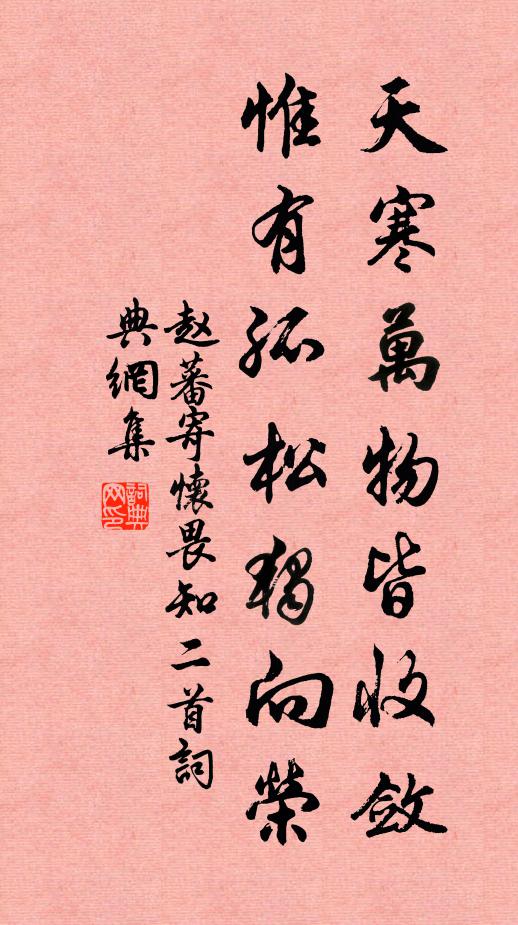 天寒萬物皆收斂
惟有孤松獨向榮
赵蕃寄懷畏知二首詞
典網集
詞典
网印